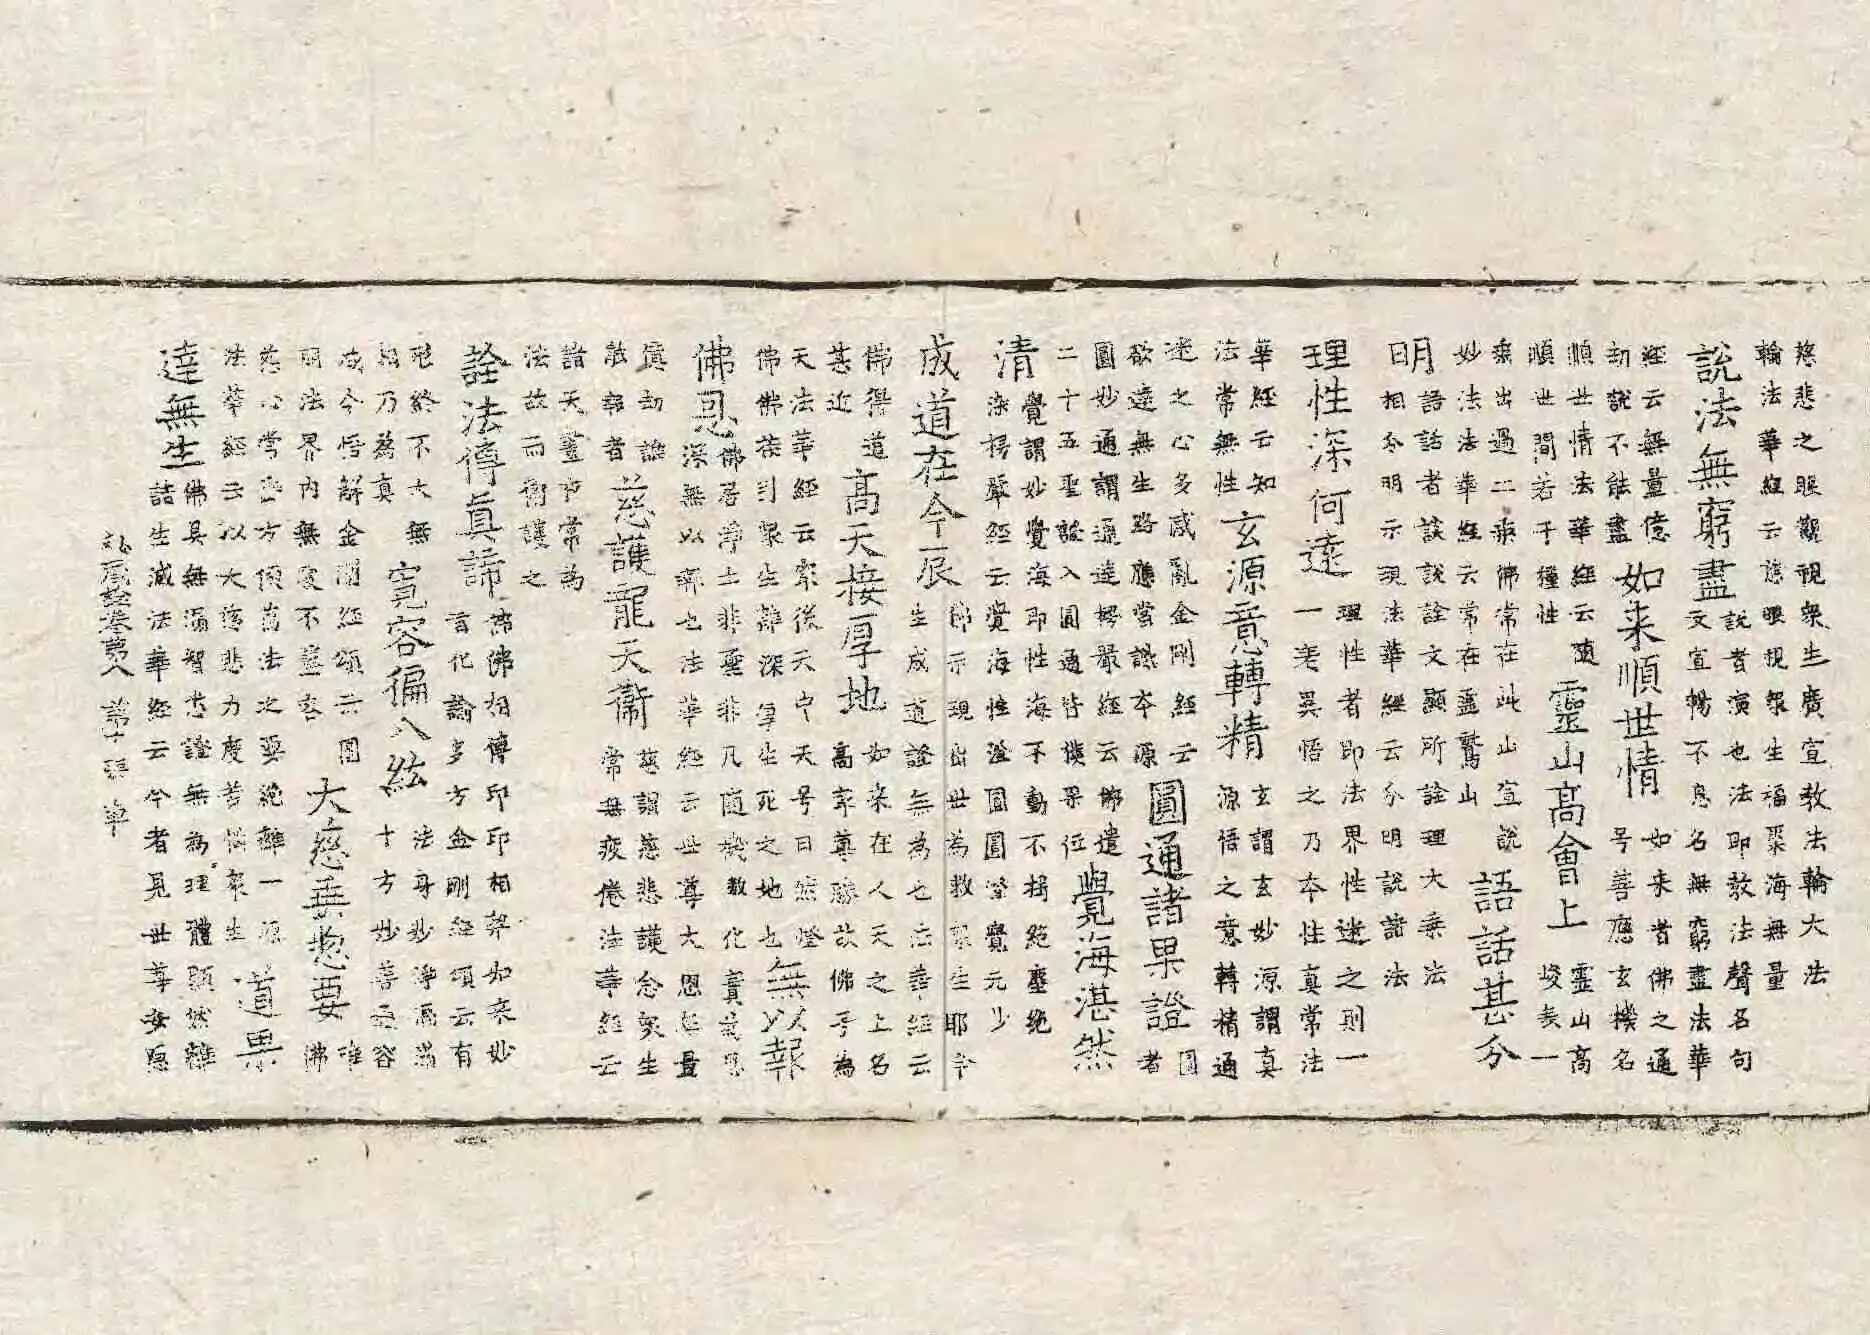 慈悲之眼觀視衆生廣宣教法輪大法
輪法華經云慈眼視衆生福聚海無量
說法無窮盡
說者演也法即教法聲名句
文宣暢不息名無窮盡法華
經云無量億
劫說不能盡
如来順世情
如来者佛之通
号善應玄機名
順世情法華經云随
順世間若干種性
靈山高會上
靈山高
峻表一
乘出過二乘佛常在此山宣說
妙法法華經云常在靈鷲山
語話甚分
明
語話者談說詮文顯所詮理大乘法
日相分明示現法華經云分明說諸法
理性深何遠
理性者即法界性迷之則一
一差異悟之乃本性真常法
華經云知
法常無性
玄源意轉精
玄謂玄妙源謂真
源悟之意轉精通
迷之心多惑亂金剛經云
欲達無生路應當識本源
圓通諸果證
圓
者
圓妙通謂通達楞嚴經云佛遣
二十五聖說入圓通皆獲果位
覺海湛然
清
覺謂妙覺海即性海不動不揺絶塵絶
染楞嚴經云覺海性澄圓圓澄覺元妙
成道在今辰
佛示現出世為救衆生耶今
生成道證無為也法華經云
佛得道
甚近
高天接厚地
如来在人天之上名
高 尊勝故佛 為
天法華經云 後天中天号曰然燈
佛佛 引衆生離深厚生死之地也
無以報
佛恩
佛居淨土非聖非凡隨機教化
深無以報也法華經云世尊大恩無量
億劫誰
能報者
慈護龍天衛
慈謂慈悲護念衆生
常無疲倦法華經云
諸天晝夜常為
法故而衛護之
詮法得真諦
諸佛相傳印印相契如来妙
言化諭多方金剛經頌云有
相終不大無
相乃為真
寛容徧八紘
法身妙淨而滿
十方妙善 容
成今悟解金剛經頌云圓
明法界内無處不 容
大慈垂惣要
唯
佛
慈心常 十方 萬法之要絶離一源
法華經云以大慈悲力度苦惱衆生
道果
達無生
佛具無漏智悉證無為理體顯然離
諸生滅法華經云今者見世尊安隱
秘藏詮卷第八 第十張 單